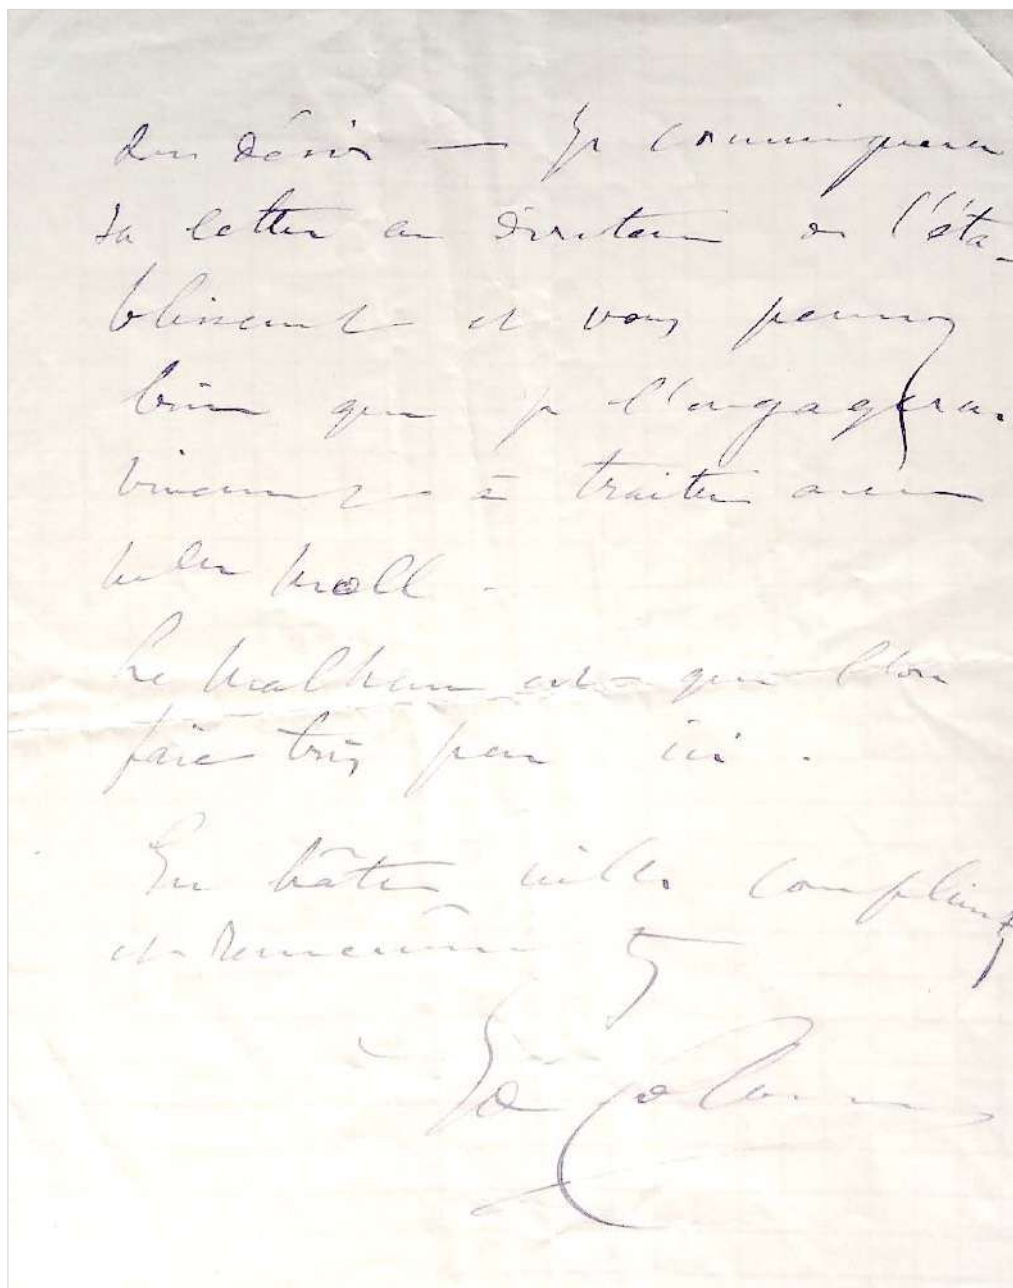 son désir — Je communiquerai
sa lettre au directeur de l'éta-
blissement et vous pensez
bien que je l'engagerai
vivement à traiter avec
Melle Moll.
Le malheur est que l'on
paie très peu ici.
En hâte mille compliments
et remerciements
Ed Colonne